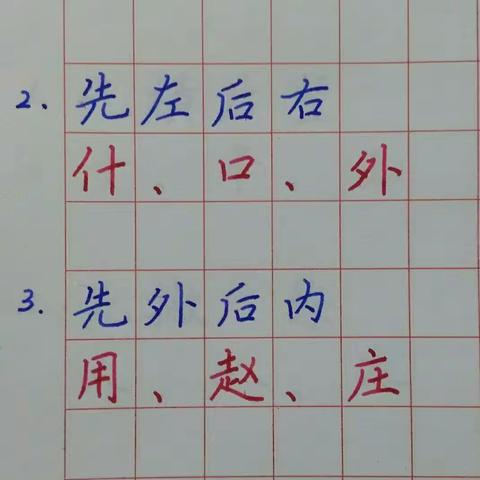 2. 先左后右
什、口、外
3. 先外后内
用、赵、庄